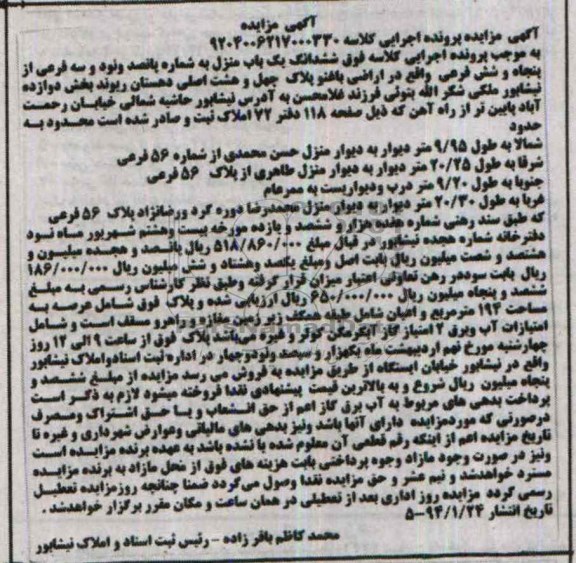 آگهی مزایده
آگهی مزایده پرونده اجرایی کلاسه ۹۲۰۴۰۰۶۲۱۷۰۰۰۳۳۰
به موجب پرونده اجرایی کلاسه فوق ششدانگ یک باب منزل به شماره پانصد ونود و سه فرعی از
پنجاه و شش فرعی واقع در اراضی باغنو پلاک چهل و هشت اصلی دهستان ریوند بخش دوازده
نیشابور ملکی شکر الله بتوئی فرزند غلامحسن به آدرس نیشابور حاشیه شمالی خیابان رحمت
آباد پایین تر از راه آهن که ذیل صفحه ۱۱۸ دفتر ۷۲ املاک ثبت و صادر شده است محدود به
حدود
شمالا به طول ۹/۹۵ متر دیوار به دیوار منزل حسن محمدی از شماره ۵۶ فرعی
شرقا به طول ۲۰/۲۵ متر دیوار به دیوار منزل طاهری از پلاک ۵۶ فرعی
جنوبا به طول ۹/۲۰ متر درب ودیواریست به ممرعام
غربا به طول ۲۰/۳۰ متر دیوار به دیوار منزل محمدرضا دوره گرد ورضانژاد پلاک ۵۶ فرعی
که طبق سند رهنی شماره هفده هزار و ششصد و یازده مورخه بیست وهشتم شهریور ماه نود
دفترخانه شماره هجده نیشابور در قبال مبلغ ۵۱۸/۸۶۰/۰۰۰ ریال پانصد و هجده میلیون و
هشتصد و شصت میلیون ریال بابت اصل ومبلغ یکصد وهشتاد و شش میلیون ریال ۱۸۶/۰۰۰/۰۰۰
ریال بابت سوددر رهن تعاونی اعتبار میزان قرار گرفته وطبق نظر کارشناس رسمی به مبلغ
ششصد و پنجاه میلیون ریال ۶۵۰/۰۰۰/۰۰۰ ریال ارزیابی شده و پلاک فوق شامل عرصه به
مساحت ۱۹۳ مترمربع و اعیان شامل طبقه همکف زیرزمین مغازه وراهرو مسقف است و شامل
امتیازات آب وبرق ۲ امتیاز گاز آبگرمکن کولر و غیره می‌باشد پلاک فوق از ساعت ۹ الی ۱۲ روز
چهارشنبه مورخ نهم اردیبهشت ماه یکهزار و سیصد ونودوچهار در اداره ثبت اسنادواملاک نیشابور
واقع در نیشابور خیابان ایستگاه از طریق مزایده به فروش می رسد مزایده از مبلغ ششصد و
پنجاه میلیون ریال شروع و به بالاترین قیمت پیشنهادی نقدا فروخته میشود لازم به ذکر است
پرداخت بدهی های مربوط به آب برق گاز اعم از حق انشعاب و یا حق اشتراک ومصرف
درصورتی که موردمزایده دارای آنها باشد ونیز بدهی های مالیاتی وعوارض شهرداری و غیره تا
تاریخ مزایده اعم از اینکه رقم قطعی آن معلوم شده یا نشده باشد به عهده برنده مزایده است
ونیز در صورت وجود مازاد وجوه پرداختی بابت هزینه های فوق از محل مازاد به برنده مزایده
مسترد خواهدشد و نیم عشر و حق مزایده نقدا وصول می‌گردد ضمنا چنانچه روزمزایده تعطیل
رسمی گردد مزایده روز اداری بعد از تعطیلی در همان ساعت و مکان مقرر برگزار خواهدشد .
تاریخ انتشار ۹۴/۱/۲۴-۵
محمد کاظم باقر زاده - رئیس ثبت اسناد و املاک نیشابور